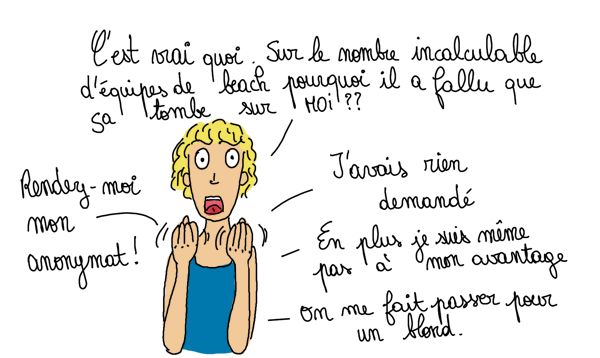 C'est vrai quoi. Sur le nombre incalculable
d'équipes de beach pourquoi il a fallu que
ça tombe sur MOI ??
Rendez-moi
mon
anonymat !
J'avais rien
demandé
En plus je suis même
pas à mon avantage
on me fait passer pour
un blond.